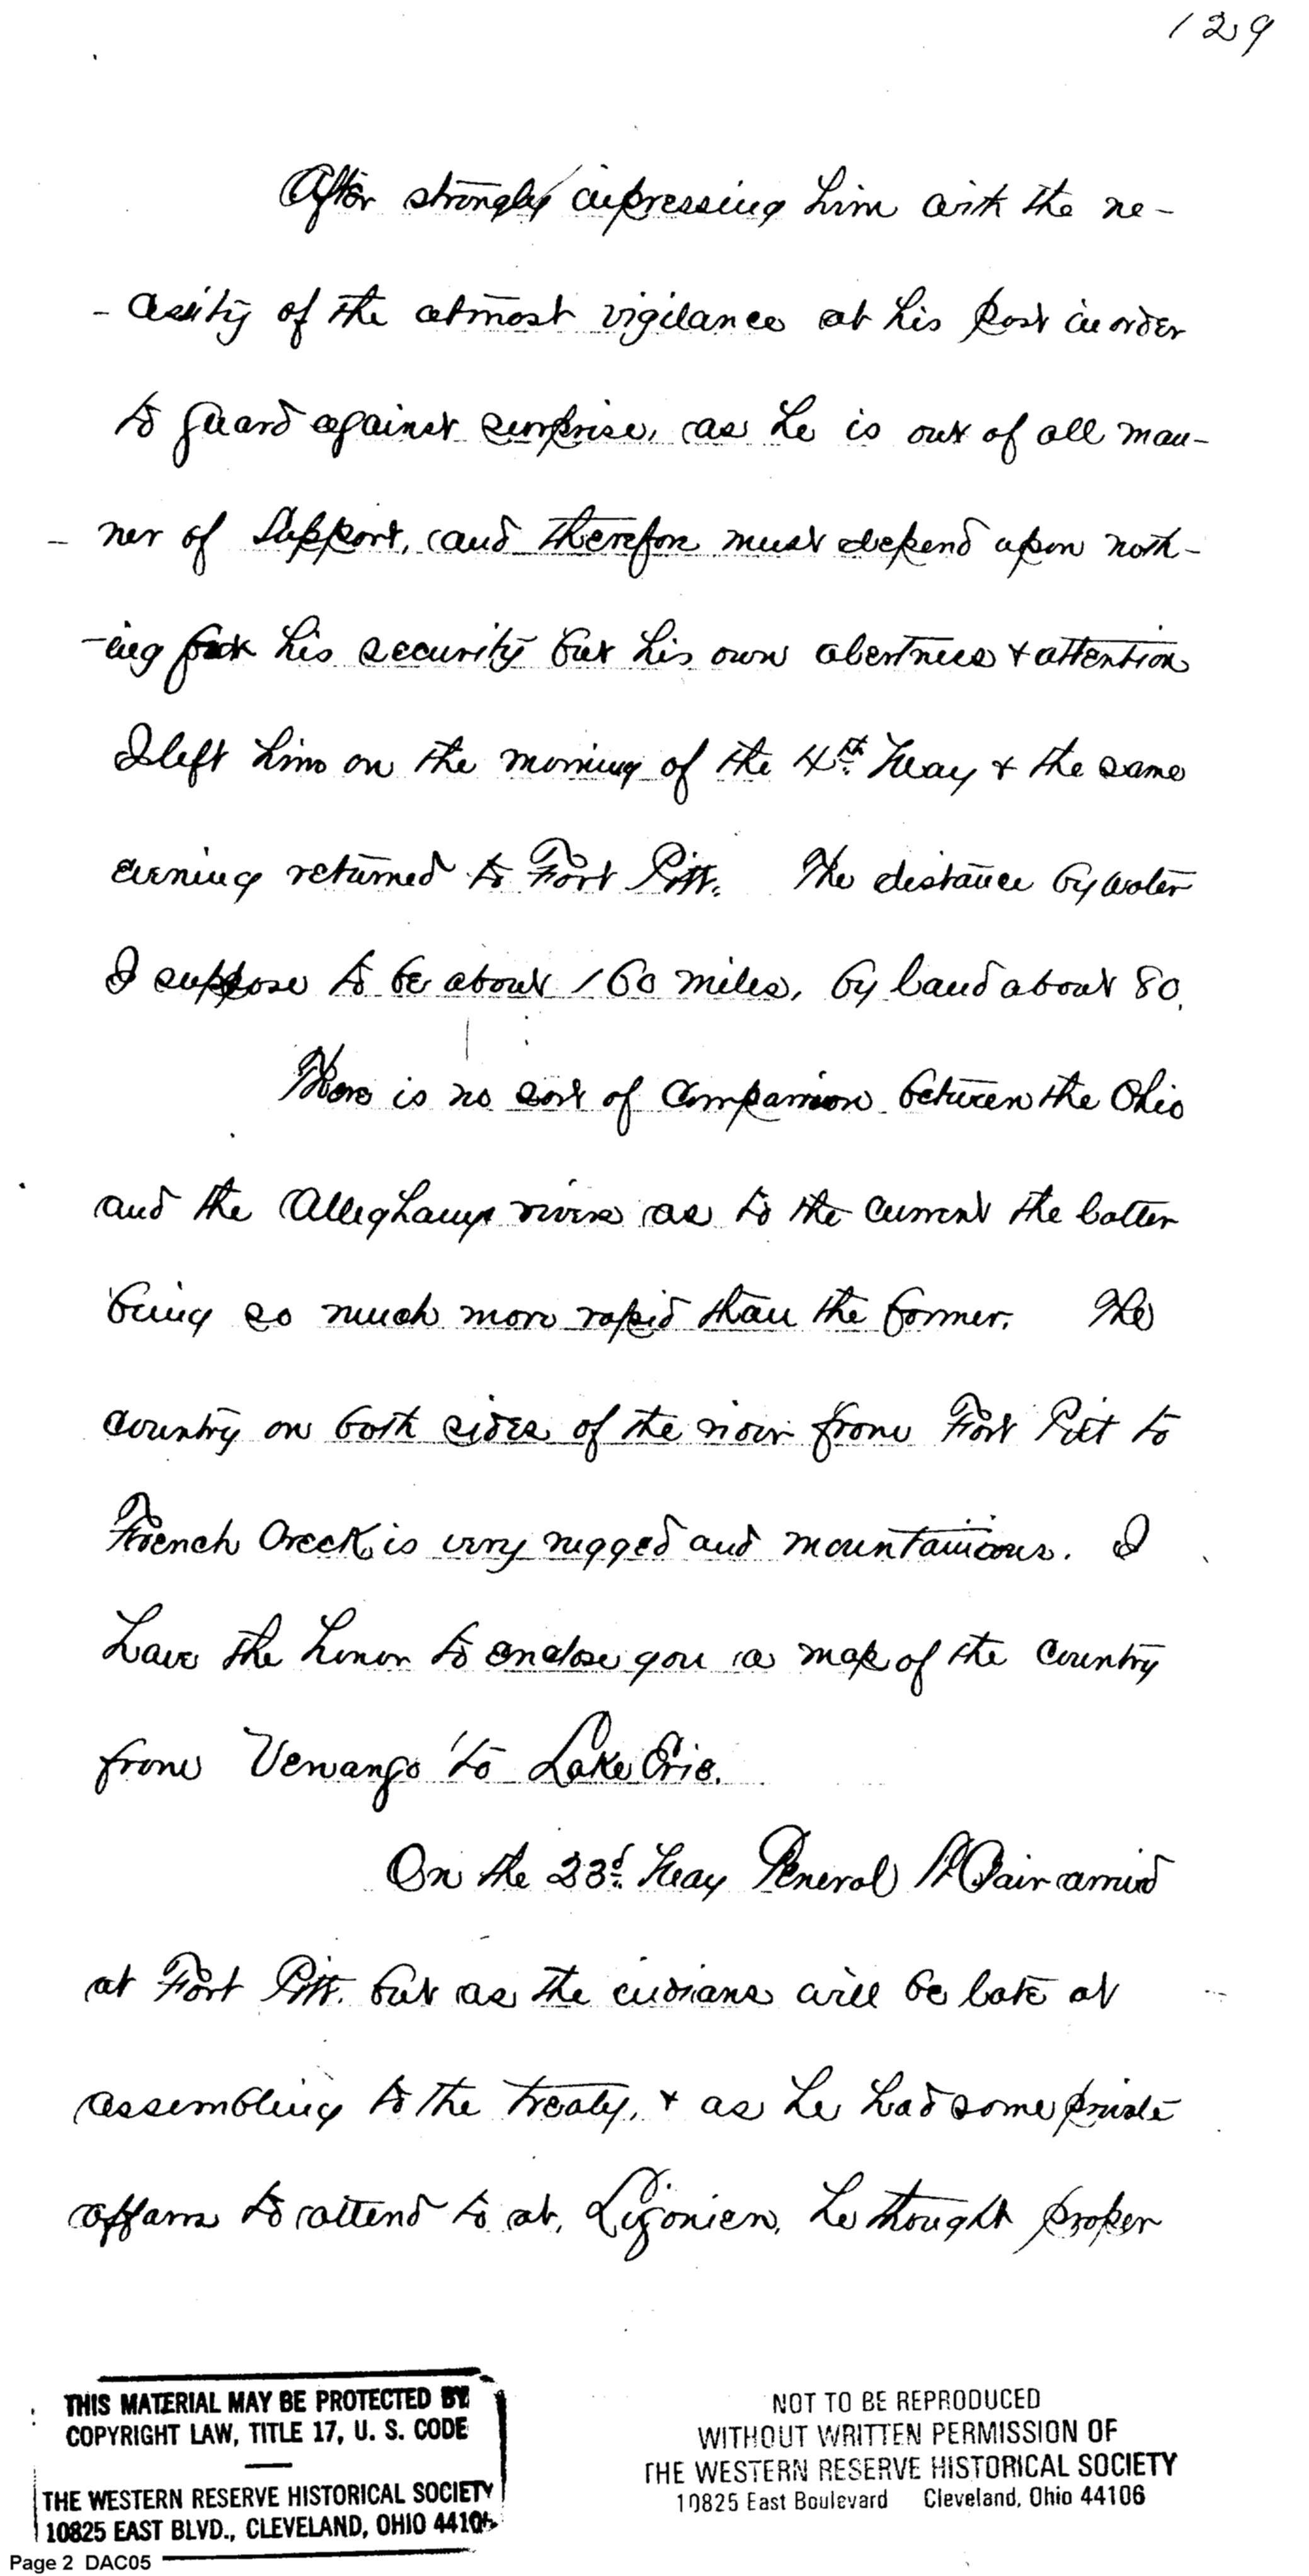 129
After strongly impressing him with the ne-
-cessity of the utmost vigilance at his post in order
to guard against surprise, as he is out of all man-
- ner of support, and therefore must depend upon noth-
-ing for his security but his own alertness & attention
I left him on the morning of the 4th May & the same
evening returned to Fort Pitt. The distance by water
I suppose to be about 160 miles, by land about 80.
There is no sort of comparison between the Ohio
and the Alleghany rivers as to the current the latter
being so much more rapid than the former. The
country on both sides of the river from Fort Pitt to
French Creek is very rugged and mountainous. I
have the honor to enclose you a map of the country
from Venango to Lake Erie.
On the 23d May General St Clair arrived
at Fort Pitt. but as the indians will be late at
assembling to the treaty, & as he had some private
affairs to attend to at, Ligonier, he thought proper
THIS MATERIAL MAY BE PROTECTED BY
COPYRIGHT LAW, TITLE 17, U. S. CODE
THE WESTERN RESERVE HISTORICAL SOCIETY
10825 EAST BLVD., CLEVELAND, OHIO 44106
NOT TO BE REPRODUCED
WITHOUT WRITTEN PERMISSION OF
THE WESTERN RESERVE HISTORICAL SOCIETY
10825 East Boulevard Cleveland, Ohio 44106
Page 2 DAC05